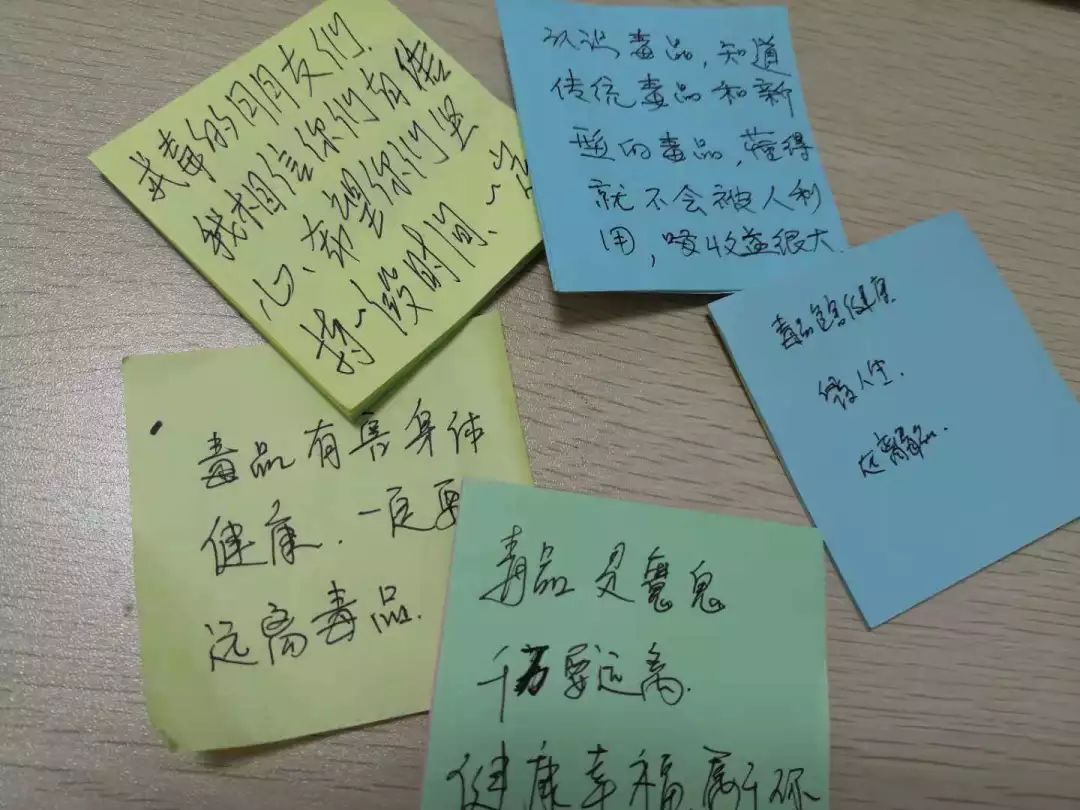 戒毒的同朋友们.
我相信你们有信
心、希望你们坚
持一段时间、一定
认识毒品，知道
传统毒品和新
型的毒品，懂得
就不会被人利
用，收益很大
毒品危害健康
毁人生.
远离毒品.
毒品有害身体
健康.一定要
远离毒品.
毒品是魔鬼
千万要远离.
健康幸福属于你